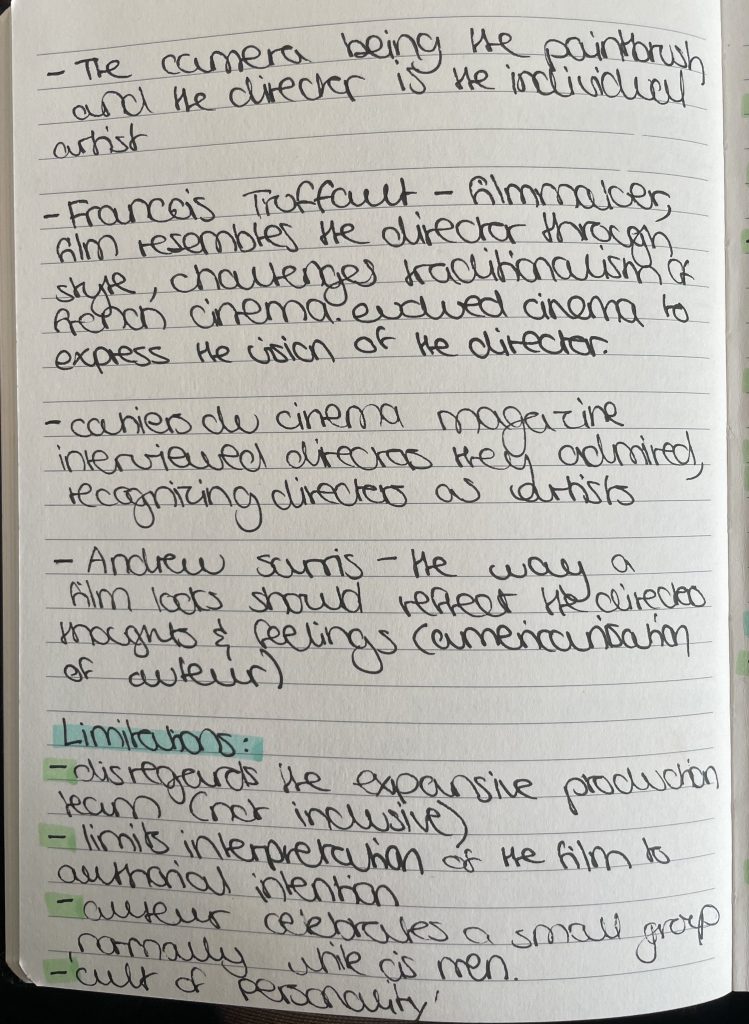 - The camera being the paintbrush
and the director is the individual
artist
- Francois Troffault - filmmaker,
film resembles the director through
style, challenges traditionalism of
french cinema. evolved cinema to
express the vision of the director.
- cahiers du cinema magazine
interviewed directors they admired,
recognizing directors as artists
- Andrew Sarris - the way a
film looks should reflect the directors
thoughts & feelings (americanisation
of auteur)
Limitations:
- disregards the expansive production
team (not inclusive)
- limits interpretation of the film to
authorial intention
- auteur celebrates a small group
, normally white cis men.
- 'cult of personality'